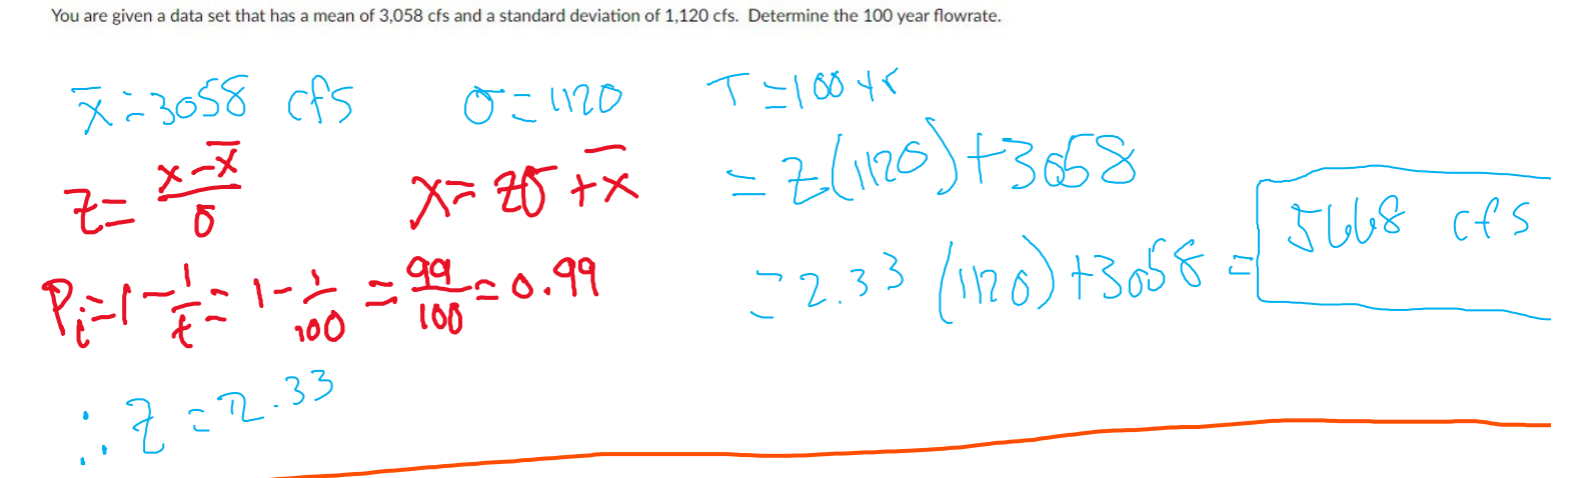 You are given a data set that has a mean of 3,058 cfs and a standard deviation of 1,120 cfs. Determine the 100 year flowrate.
x̄ = 3058 cfs σ = 1120 T = 100 yr
z = (x - x̄)/σ x = zσ + x̄
Pi = 1 - 1/t = 1 - 1/100 = 99/100 = 0.99
∴ z = 2.33
= z(1120) + 3058
= 2.33 (1120) + 3058 = 5668 cfs